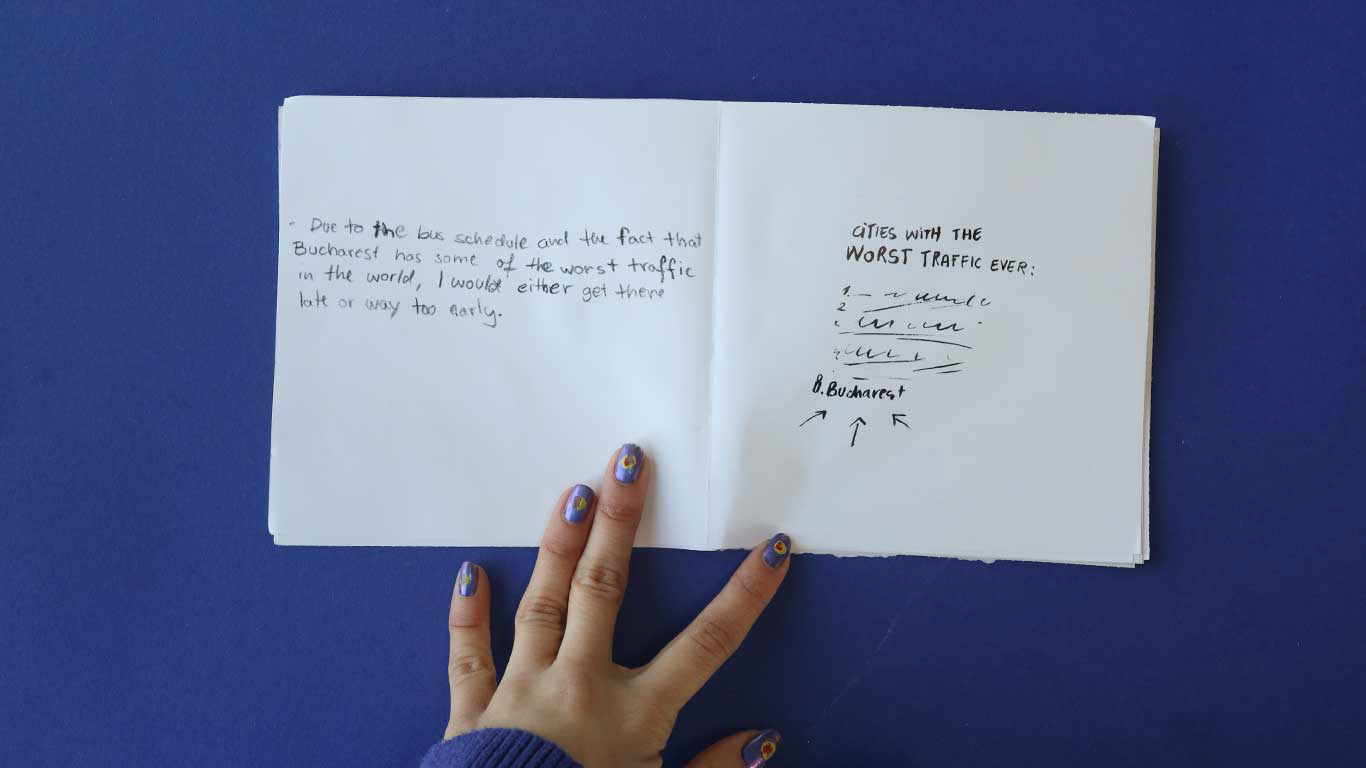 - Due to the bus schedule and the fact that
Bucharest has some of the worst traffic
in the world, I would either get there
late or way too early.
CITIES WITH THE
WORST TRAFFIC EVER:
1.
2
8. Bucharest